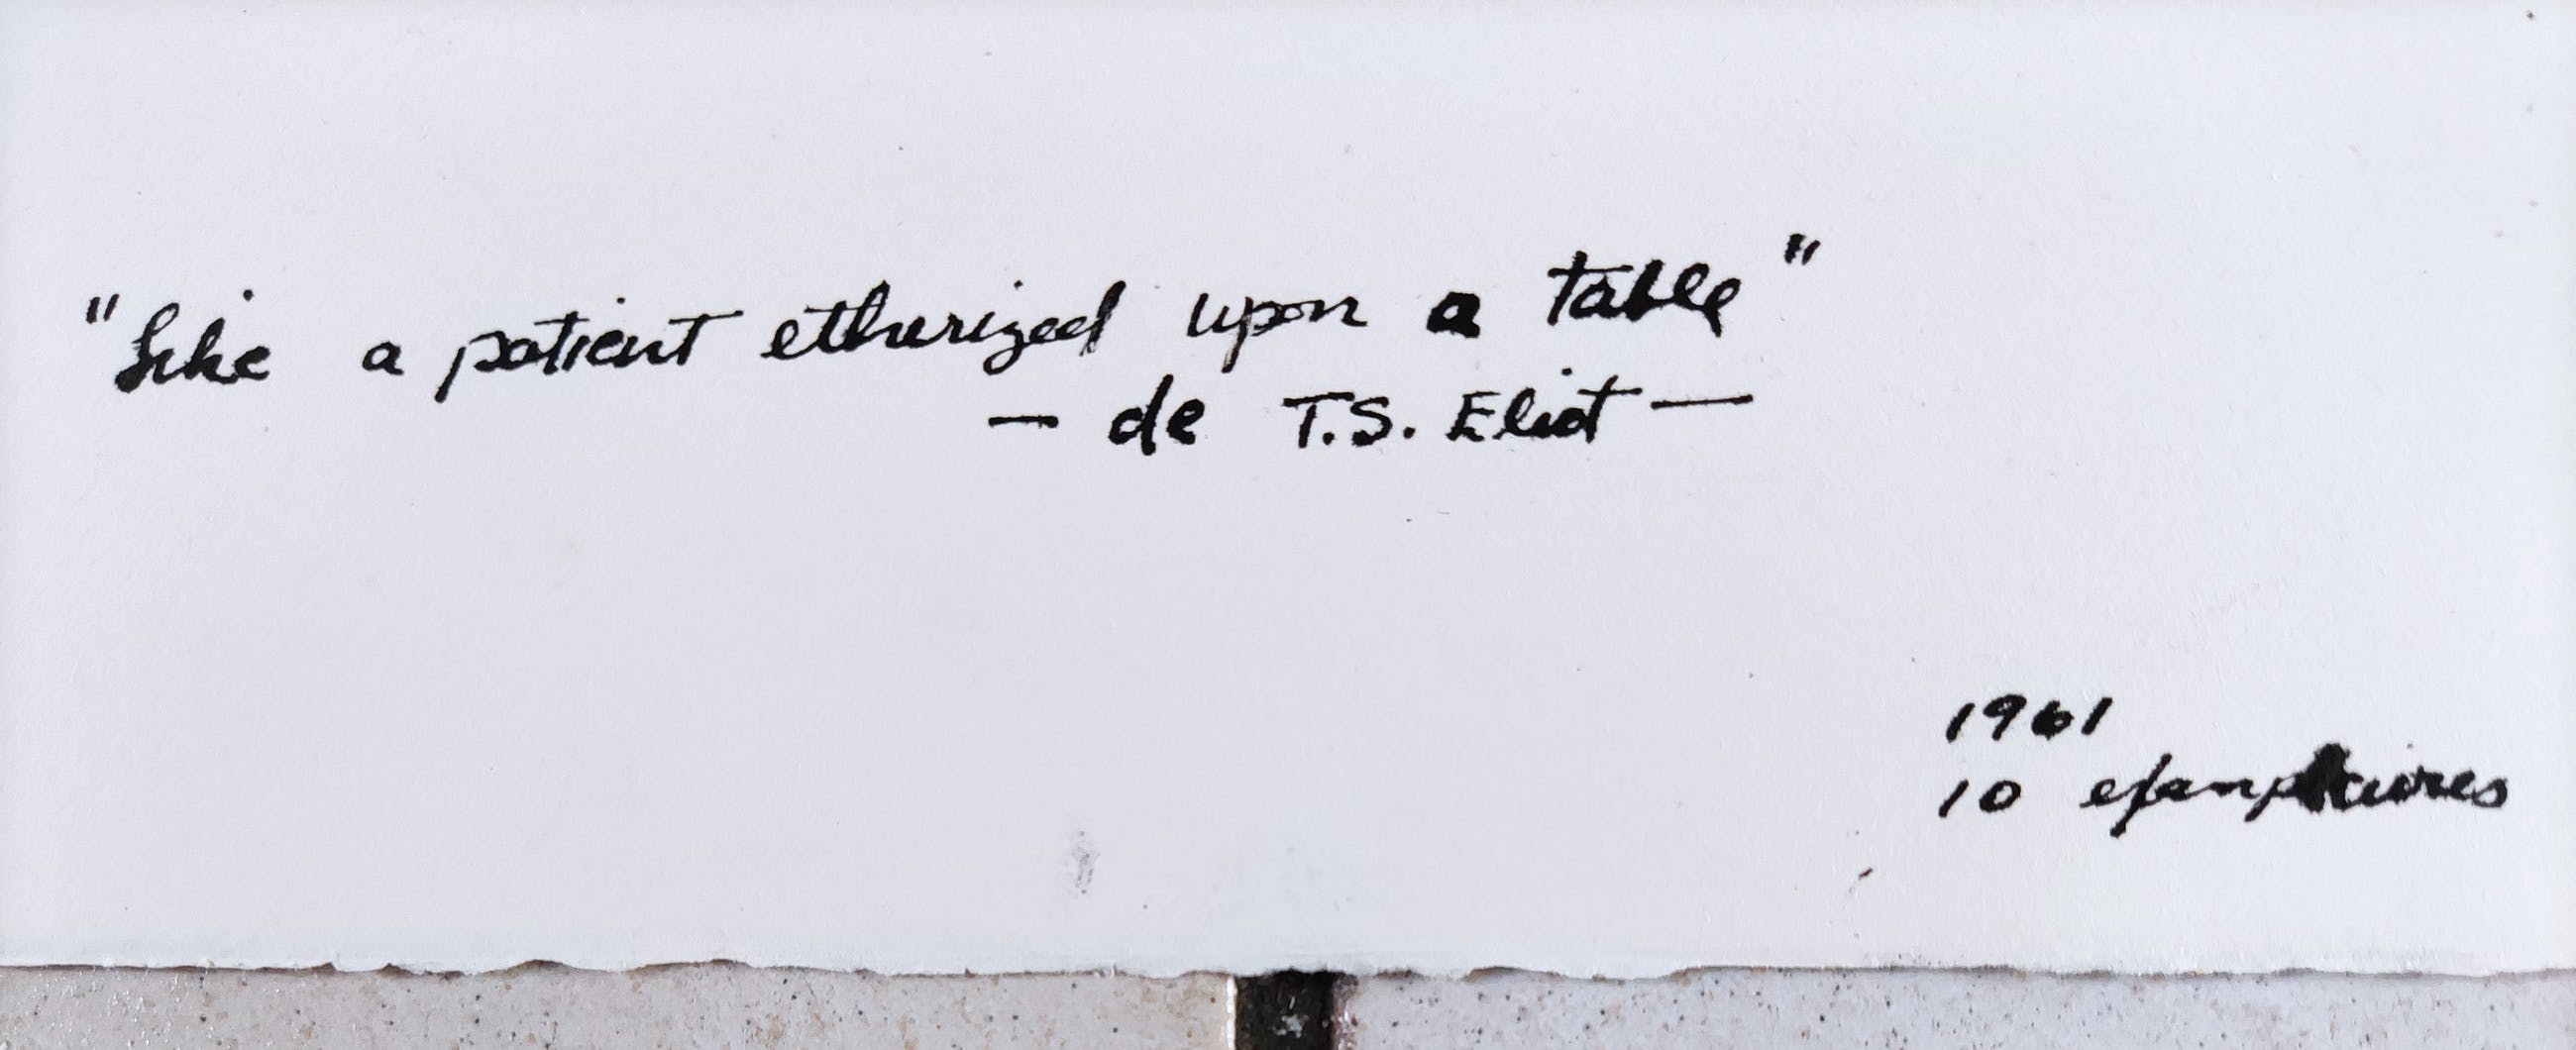 "Like a patient etherized upon a table"
— de T.S. Eliot —
1961
10 ejemplares